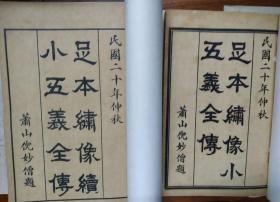 民國二十年仲秋
足本繡像小
五義全傳
蕭山倪妙僧題
民國二十年仲秋
足本繡像續
小五義全傳
蕭山倪妙僧題